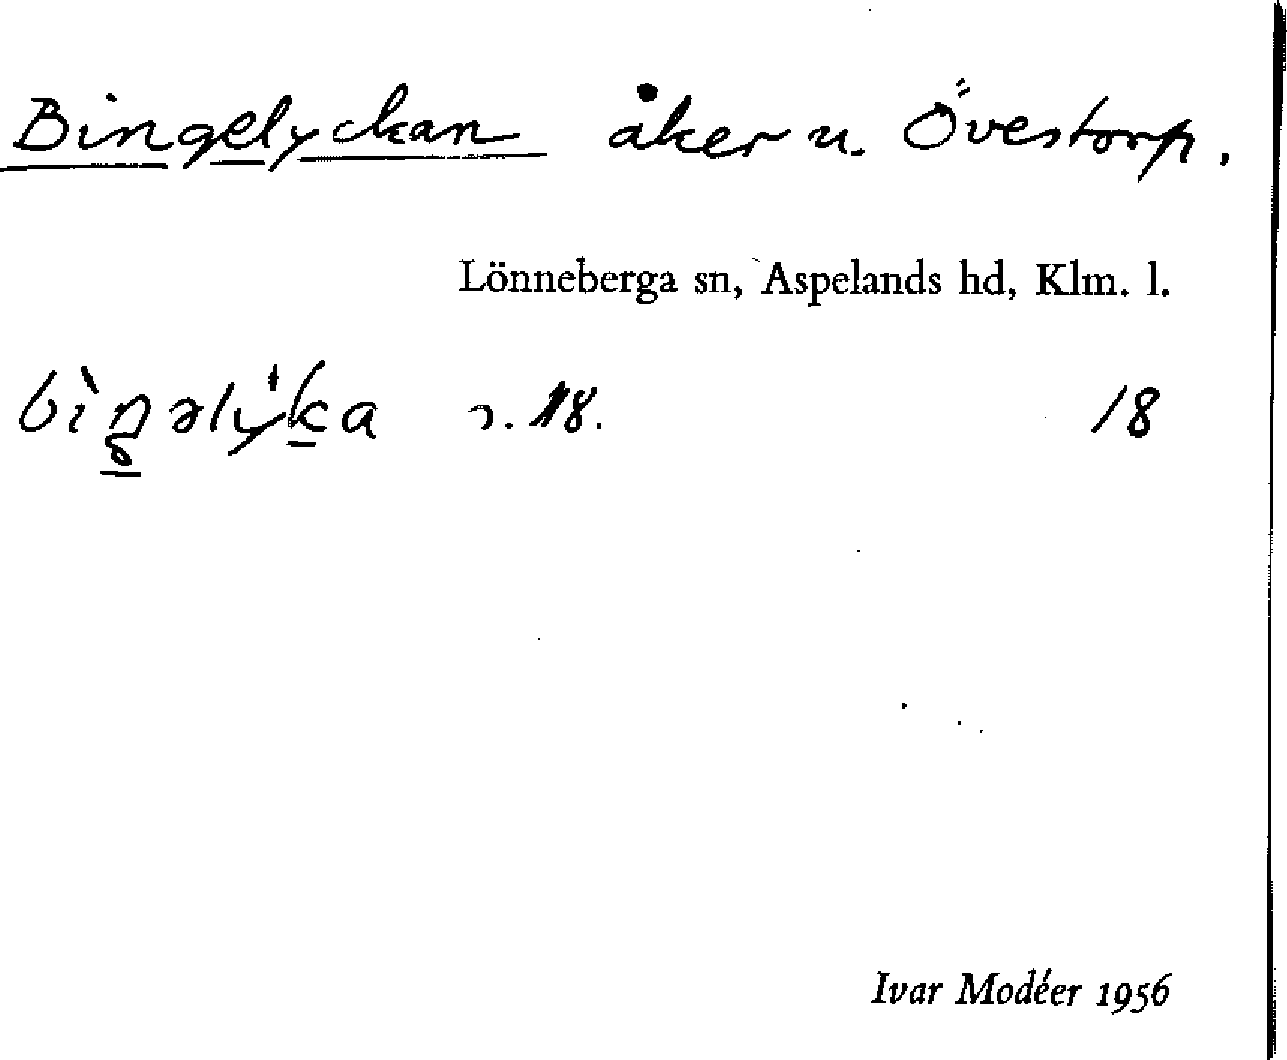 Bingelyckan åker u. Övestorp.
Lönneberga sn, Aspelands hd, Klm. l.
bìŋəlyka ɔ. 18. 18
Ivar Modéer 1956